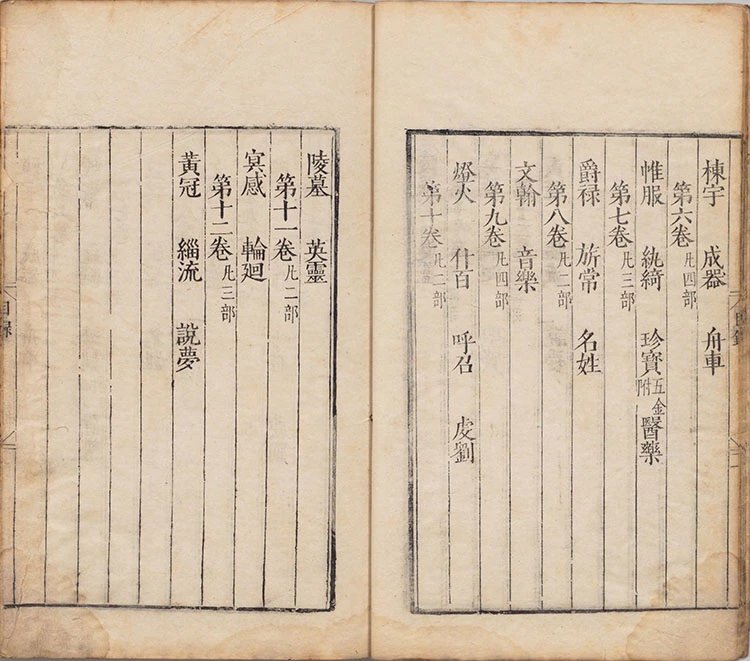 棟宇 成器 舟車
第六卷凡四部
帷服 紈綺 珍寶五金附 醫藥
第七卷凡三部
爵禄 旂常 名姓
第八卷凡二部
文翰 音樂
第九卷凡四部
燈火 什百 呼召 虔劉
第十卷凡二部
目錄
陵墓 英靈
第十一卷凡二部
冥感 輪廻
第十二卷凡三部
黃冠 緇流 說夢
目録